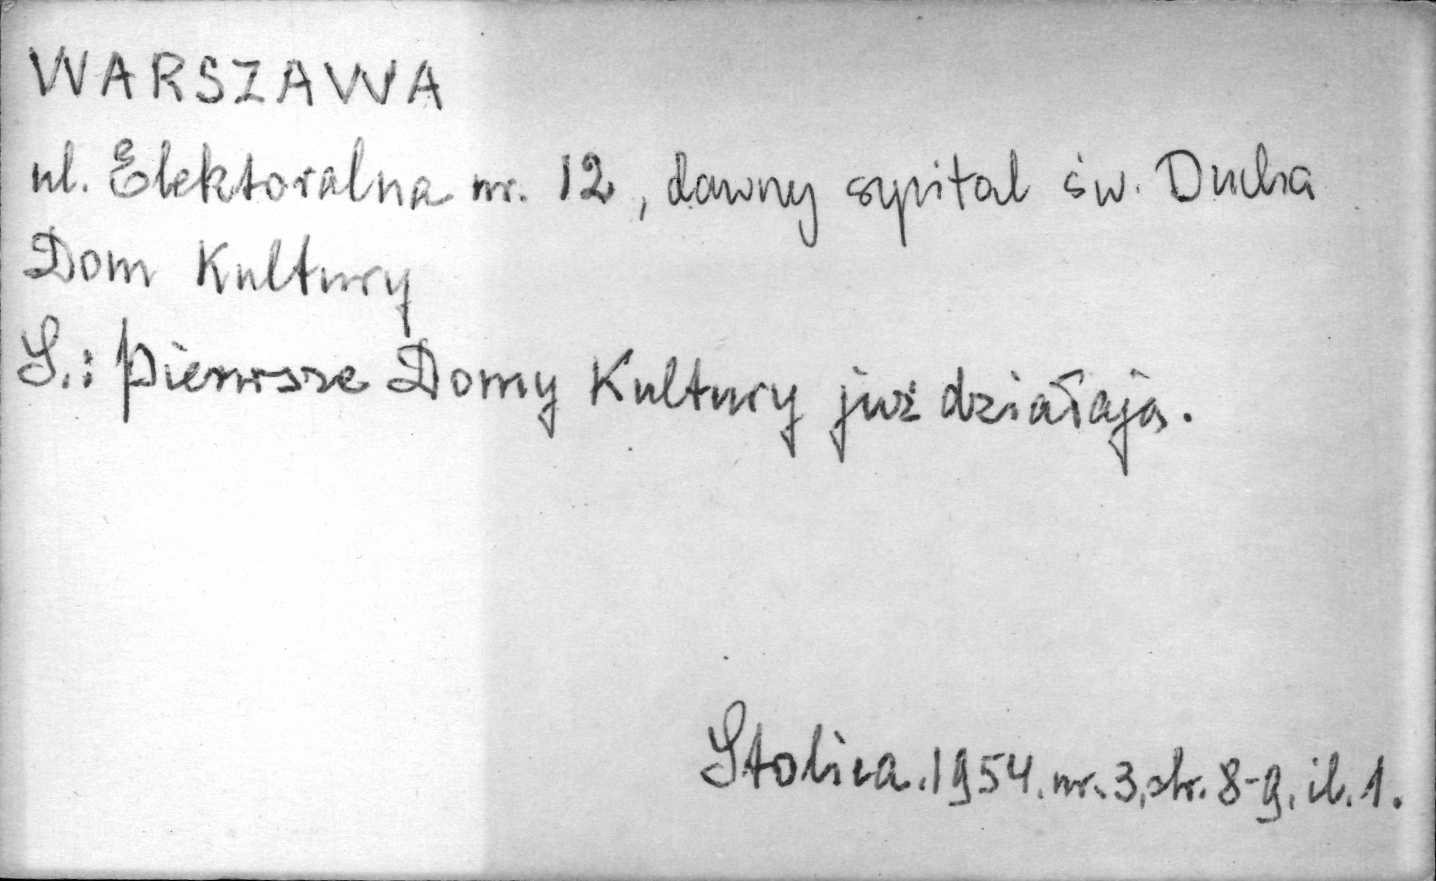 WARSZAWA
ul. Elektoralna nr. 12, dawny szpital św. Ducha
Dom Kultury
S.: Pierwsze Domy Kultury już działają.
Stolica. 1954. nr. 3, str. 8-9, il. 1.